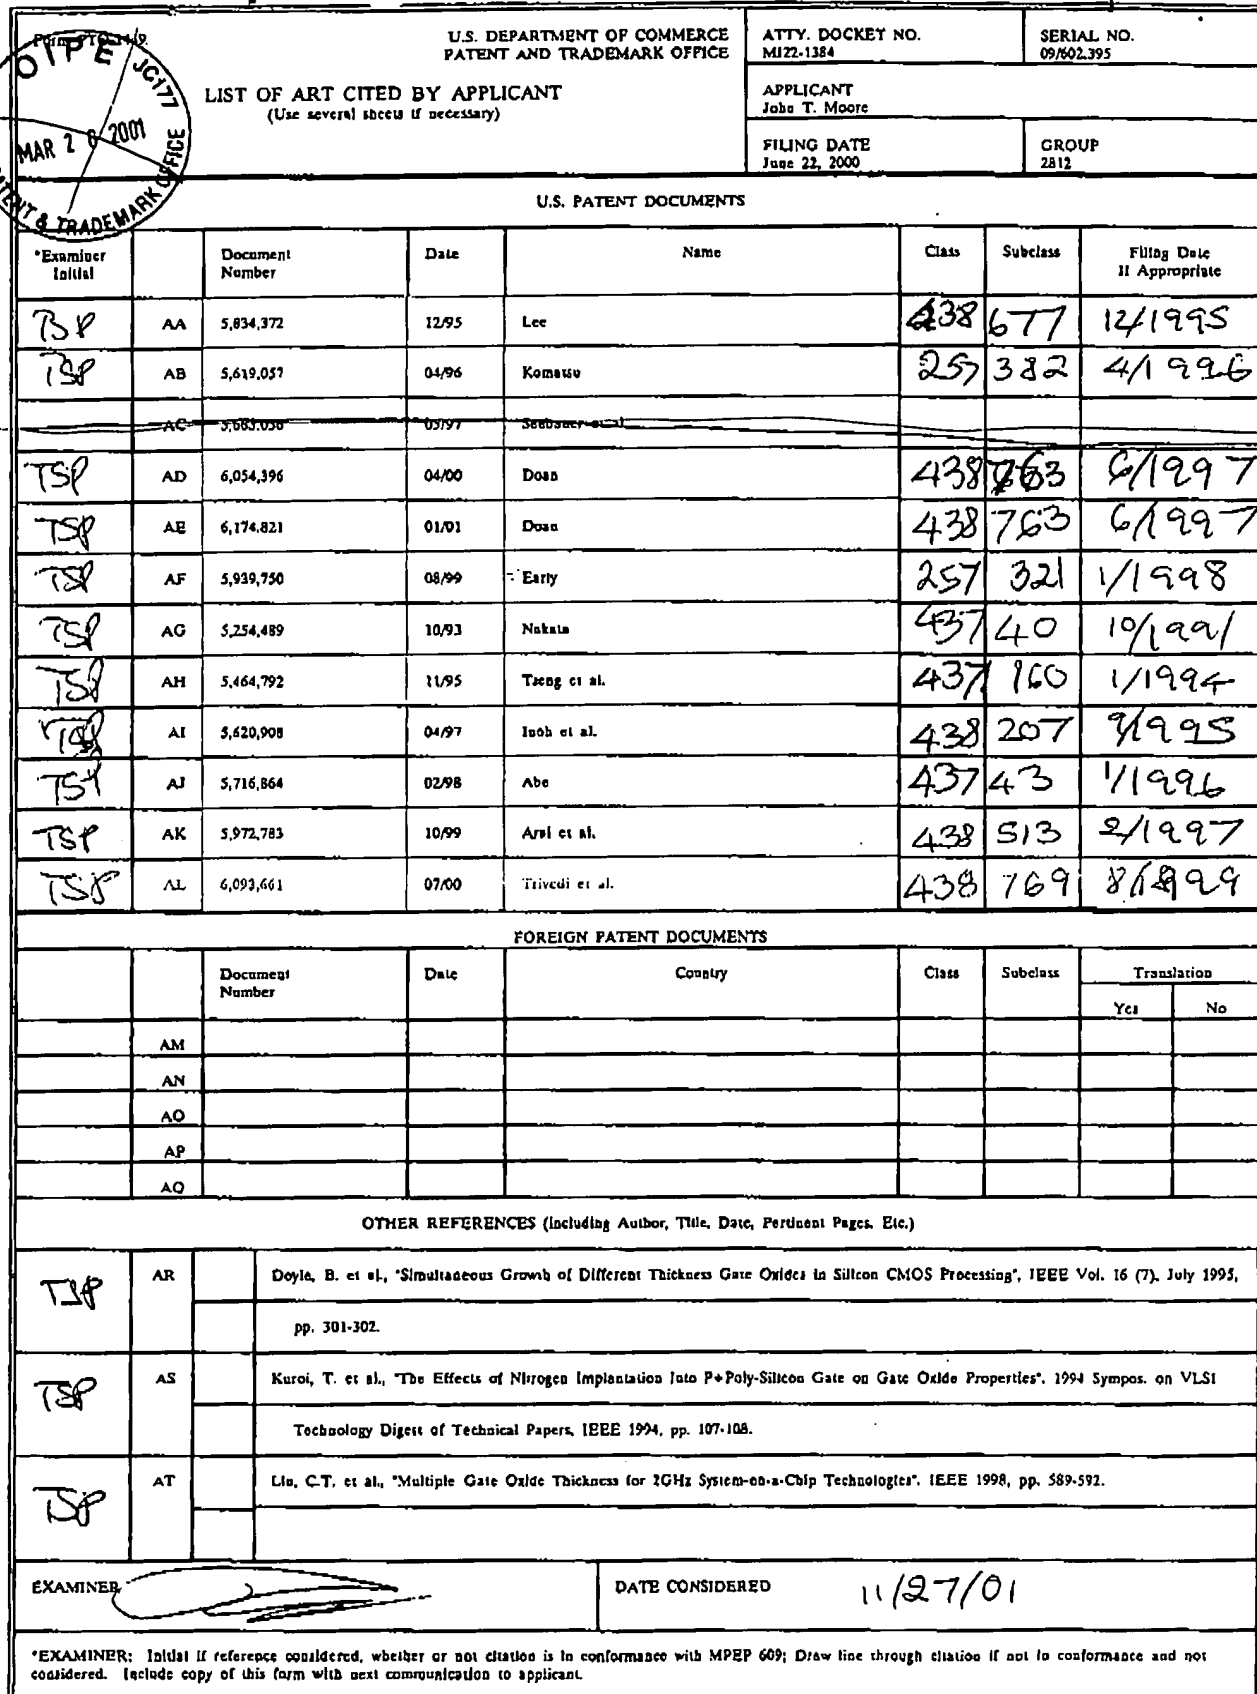 Form PTO-1449
OIPE JC177
MAR 26 2001
PATENT & TRADEMARK OFFICE
U.S. DEPARTMENT OF COMMERCE
PATENT AND TRADEMARK OFFICE
LIST OF ART CITED BY APPLICANT
(Use several sheets if necessary)
ATTY. DOCKET NO.
MI22-1384
SERIAL NO.
09/602,395
APPLICANT
John T. Moore
FILING DATE
June 22, 2000
GROUP
2812
U.S. PATENT DOCUMENTS
*Examiner Initial Document Number Date Name Class Subclass Filing Date If Appropriate
TSP AA 5,834,372 12/95 Lee 438 677 12/1995
TSP AB 5,619,057 04/96 Komatsu 257 382 4/1996
AC 5,683,036 03/97 et al
TSP AD 6,054,396 04/00 Doan 438 763 6/1997
TSP AE 6,174,821 01/01 Doan 438 763 6/1997
TSP AF 5,939,750 08/99 Early 257 321 1/1998
TSP AG 5,254,489 10/93 Nakata 437 40 10/1991
TSP AH 5,464,792 11/95 Tseng et al. 437 160 1/1994
TSP AI 5,620,908 04/97 Inoh et al. 438 207 9/1995
TSP AJ 5,716,864 02/98 Abe 437 43 1/1996
TSP AK 5,972,783 10/99 Arai et al. 438 513 2/1997
TSP AL 6,093,661 07/00 Trivedi et al. 438 769 8/1999
FOREIGN PATENT DOCUMENTS
Document Number Date Country Class Subclass Translation
Yes No
AM
AN
AO
AP
AQ
OTHER REFERENCES (Including Author, Title, Date, Pertinent Pages, Etc.)
TSP AR Doyle, B. et al., "Simultaneous Growth of Different Thickness Gate Oxides in Silicon CMOS Processing", IEEE Vol. 16 (7), July 1995,
pp. 301-302.
TSP AS Kuroi, T. et al., "The Effects of Nitrogen Implantation Into P+Poly-Silicon Gate on Gate Oxide Properties", 1994 Sympos. on VLSI
Technology Digest of Technical Papers, IEEE 1994, pp. 107-108.
TSP AT Liu, C.T. et al., "Multiple Gate Oxide Thickness for 2GHz System-on-a-Chip Technologies", IEEE 1998, pp. 589-592.
EXAMINER
DATE CONSIDERED 11/27/01
*EXAMINER: Initial if reference considered, whether or not citation is in conformance with MPEP 609; Draw line through citation if not in conformance and not
considered. Include copy of this form with next communication to applicant.